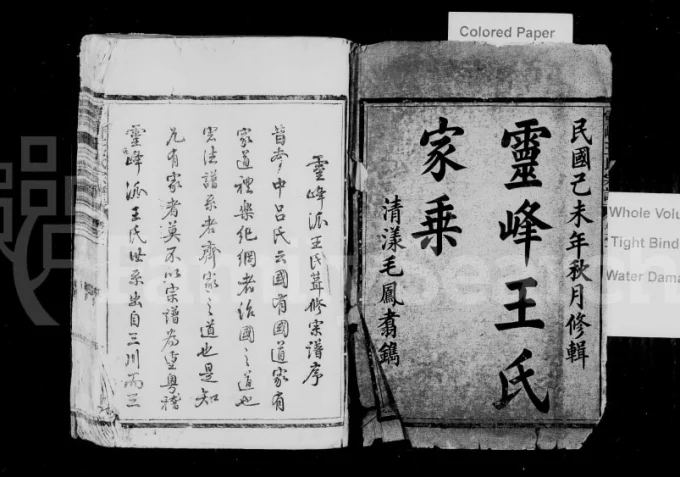 Colored Paper
民國己未年秋月修輯
靈峰王氏
家乘
清漾毛鳳翥鐫
Whole Volu
Tight Bind
Water Dama
靈峰派王氏葺修宗譜序
昔岑中呂氏云國有國道家有
家道禮樂紀綱者治國之道也
宗法譜系者齊家之道也是知
凡有家者莫不以宗譜為重粵稽
靈峰派王氏世系出自三川而三
FamilySearch